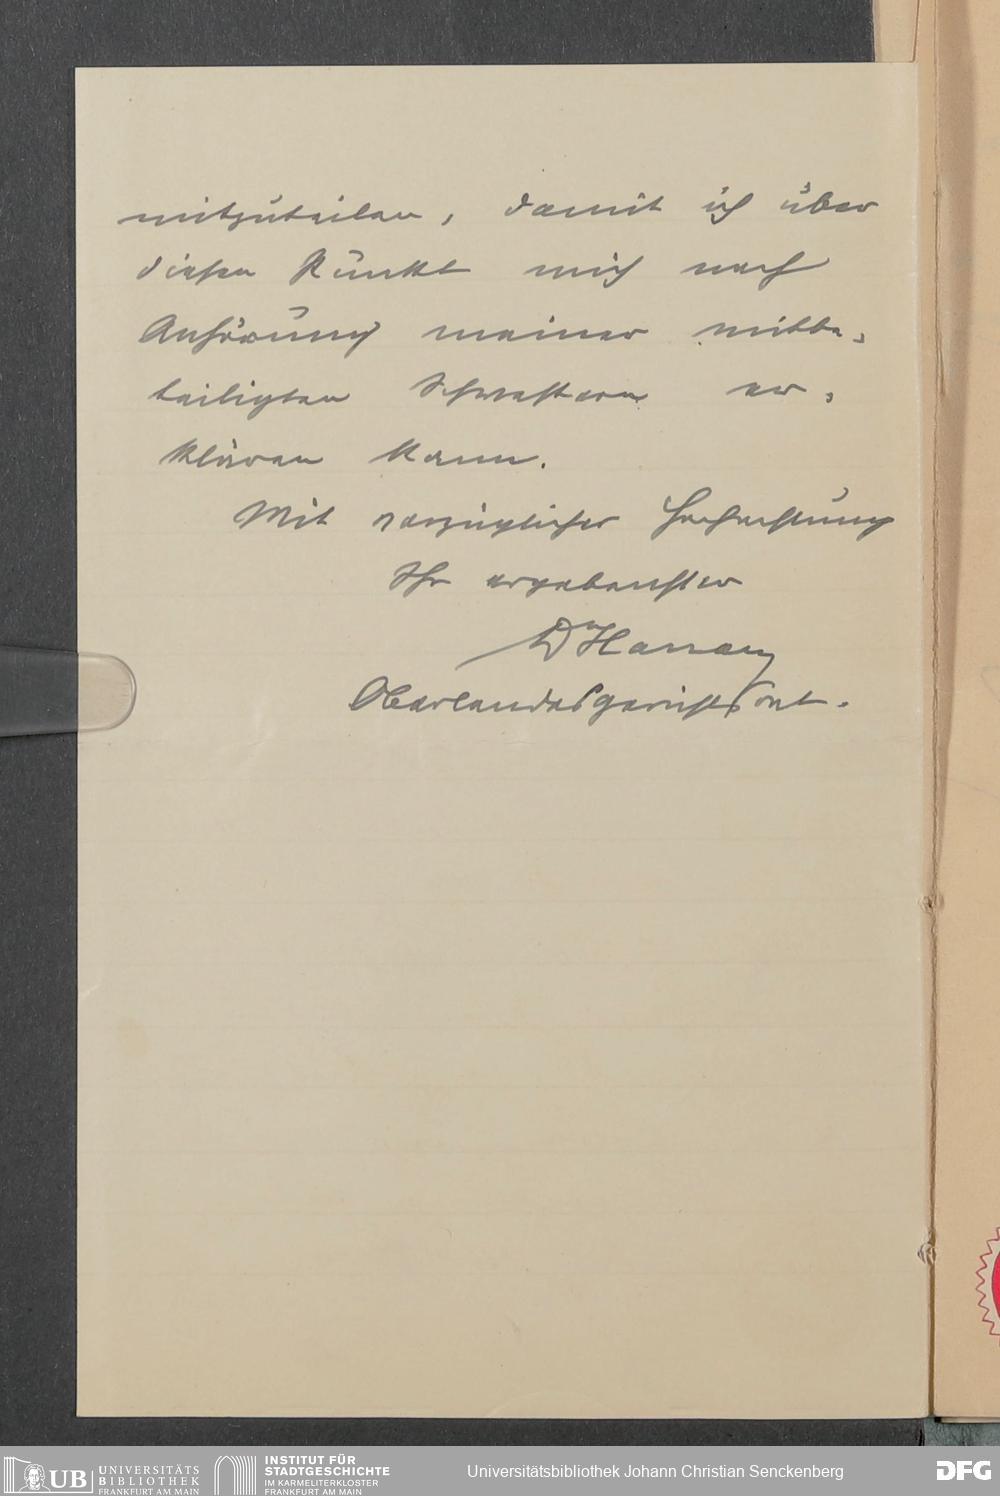 mitzuteilen, damit ich über
diesen Punkt mich nach
Anhörung meiner mitbe-
teiligten Schwestern er-
klären kann.
Mit vorzüglicher Hochachtung
Ihr ergebenster
Dr
Oberlandesgerichtsrat.
UB UNIVERSITÄTS
BIBLIOTHEK
FRANKFURT AM MAIN
INSTITUT FÜR
STADTGESCHICHTE
IM KARMELITERKLOSTER
FRANKFURT AM MAIN
Universitätsbibliothek Johann Christian Senckenberg
DFG